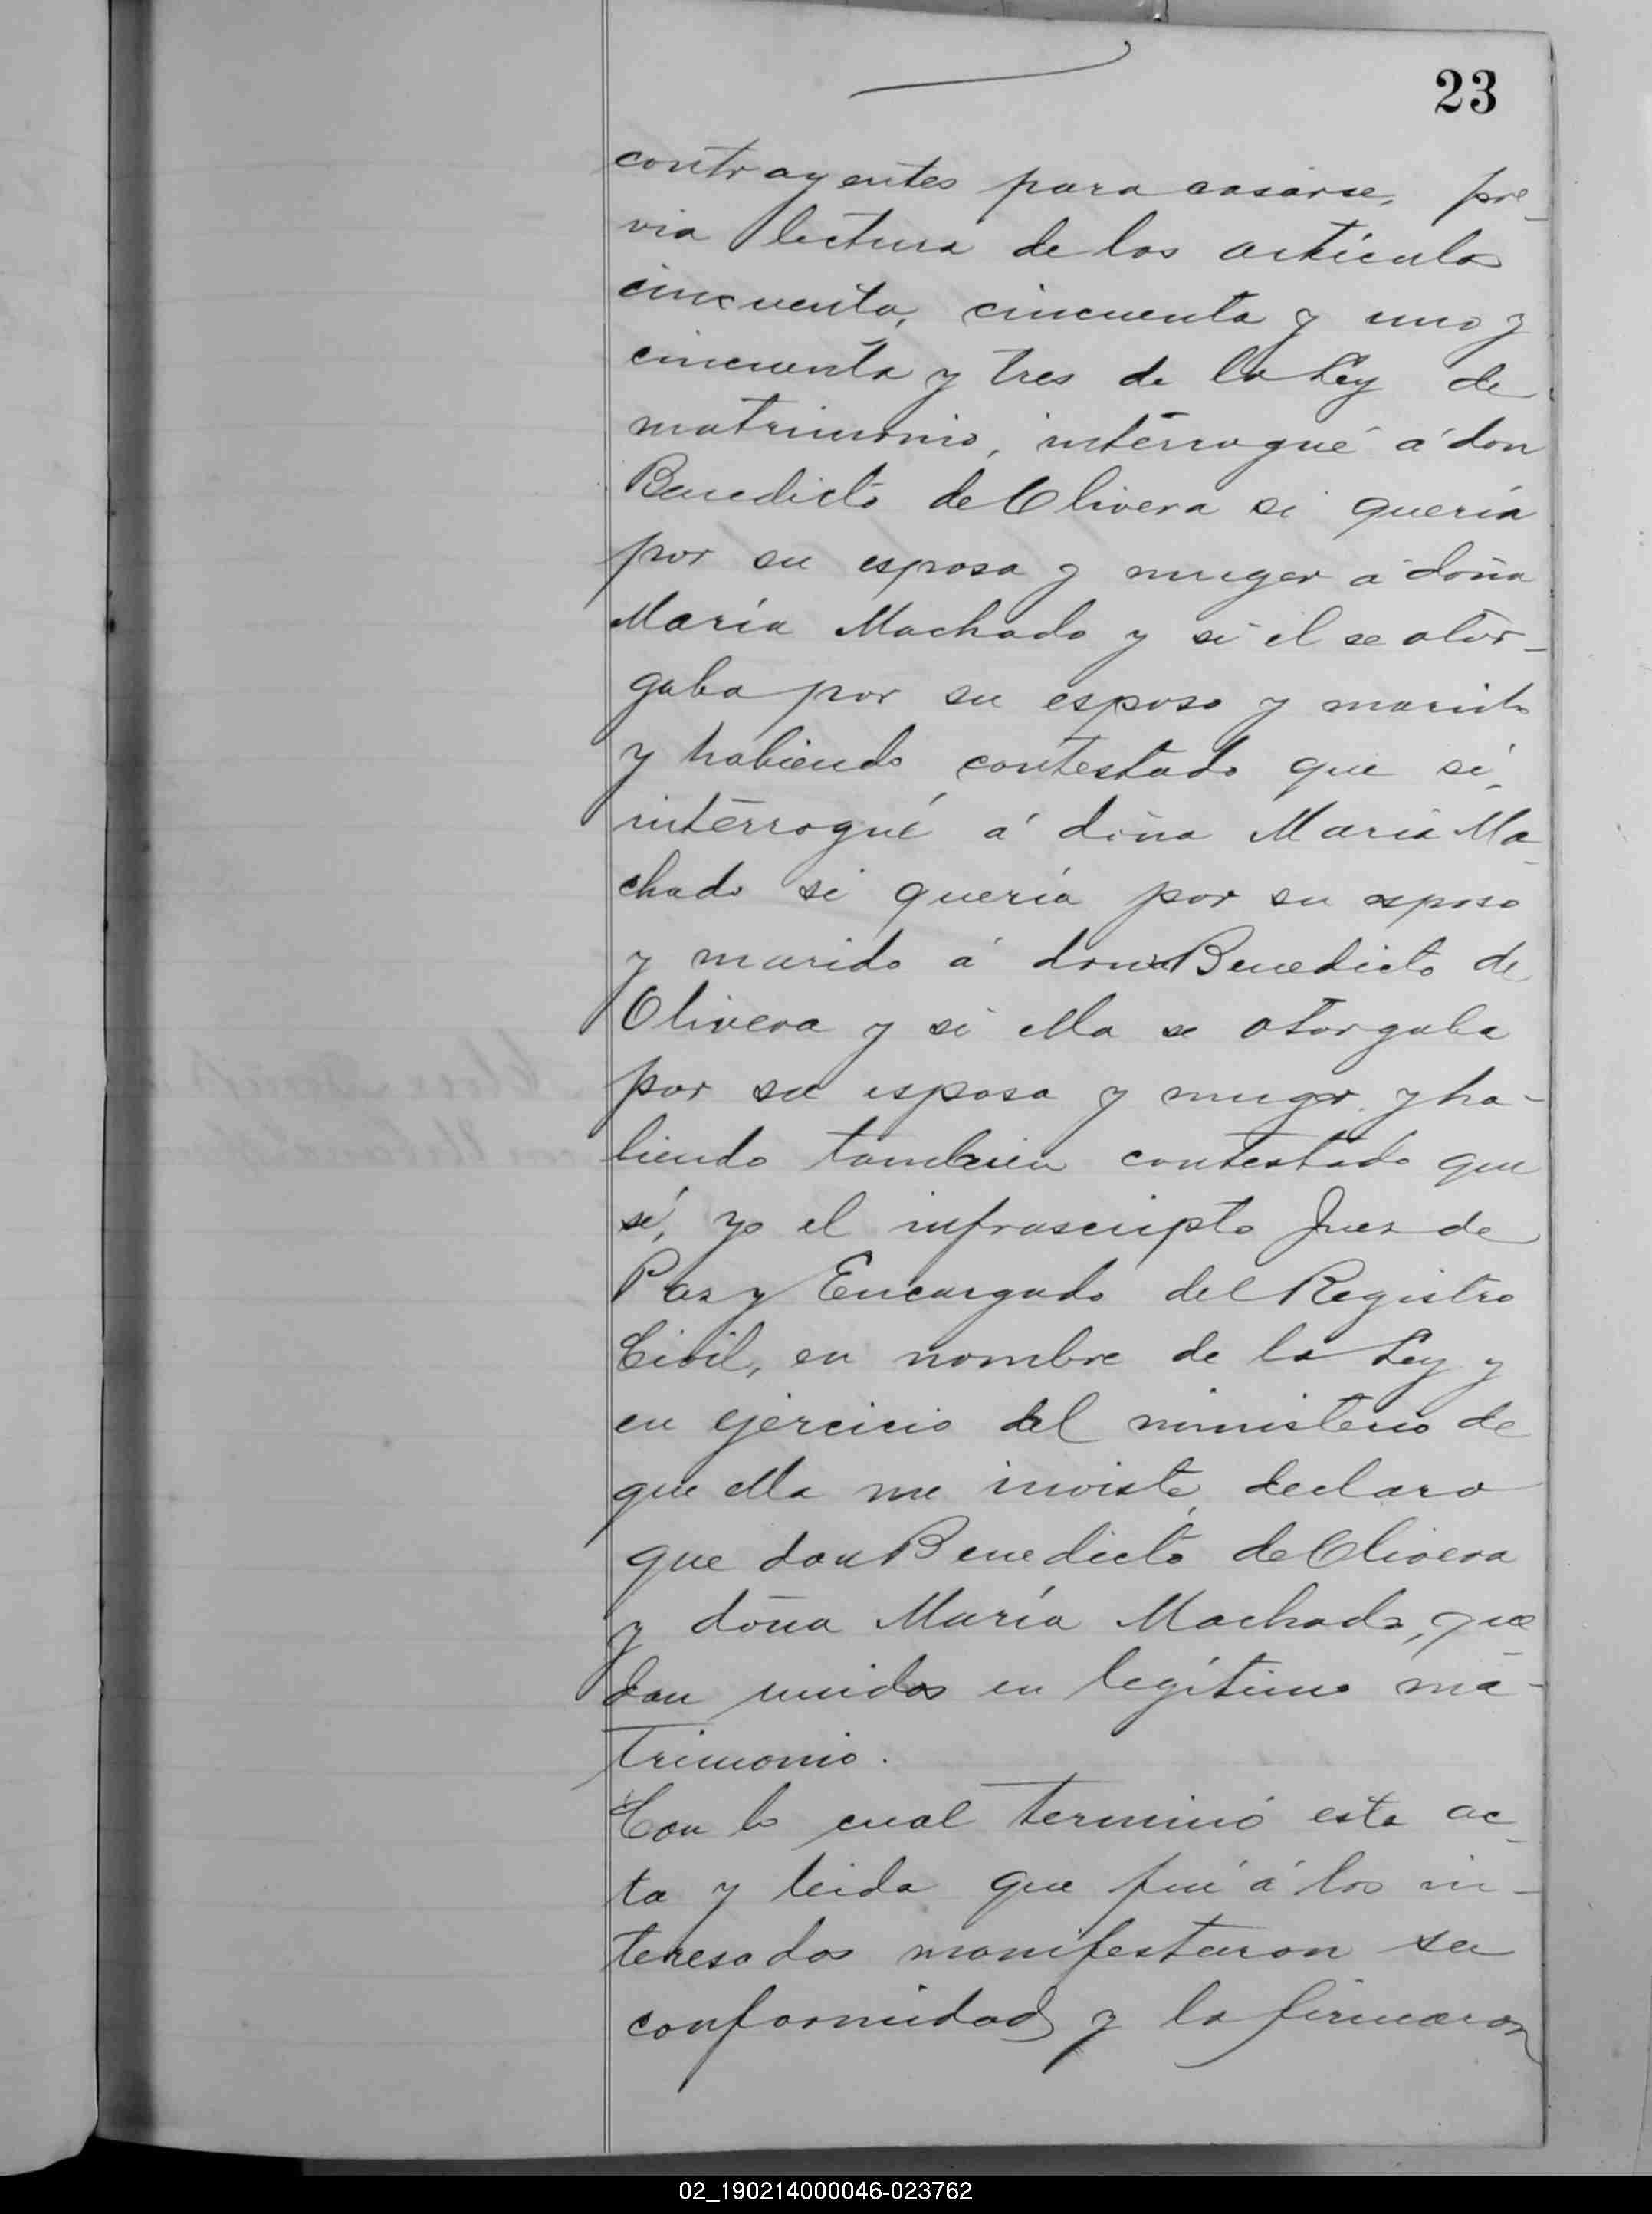 23
contrayentes para casarse, pre-
via lectura de los artículos
cincuenta, cincuenta y uno y
cincuenta y tres de la Ley de
matrimonio, interrogué á don
Benedicto de Olivera si quería
por su esposa y muger á doña
María Machado y si él se otor-
gaba por su esposo y marido
y habiendo contestado que sí,
interrogué á doña María Ma-
chado si quería por su esposo
y marido á don Benedicto de
Olivera y si ella se otorgaba
por su esposa y muger y ha-
biendo tambien contestado que
sí, yo el infrascripto Juez de
Paz y Encargado del Registro
Civil, en nombre de la Ley y
en ejercicio del ministerio de
que ella me inviste, declaro
que don Benedicto de Olivera
y doña María Machado, que-
dan unidos en legítimo ma-
trimonio.
Con lo cual terminó esta ac-
ta y leida que fué á los in-
teresados manifestaron su
conformidad y la firmaron
02_190214000046-023762